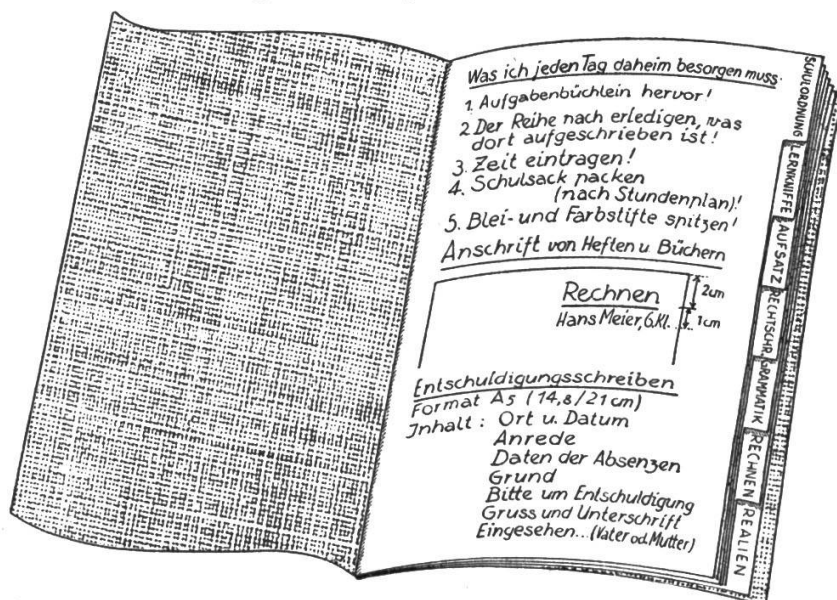 Was ich jeden Tag daheim besorgen muss.
1. Aufgabenbüchlein hervor!
2. Der Reihe nach erledigen, was
dort aufgeschrieben ist!
3. Zeit eintragen!
4. Schulsack packen
(nach Stundenplan)!
5. Blei- und Farbstifte spitzen!
Anschrift von Heften u. Büchern
Rechnen
Hans Meier, 6.Kl.
2cm
1cm
Entschuldigungsschreiben
Format A5 (14,8/21cm)
Inhalt: Ort u. Datum
Anrede
Daten der Absenzen
Grund
Bitte um Entschuldigung
Gruss und Unterschrift
Eingesehen...(Vater od. Mutter)
SCHULORDNUNG
LERNKNIFFE
AUFSATZ
RECHTSCHR.
GRAMMATIK
RECHNEN
REALIEN